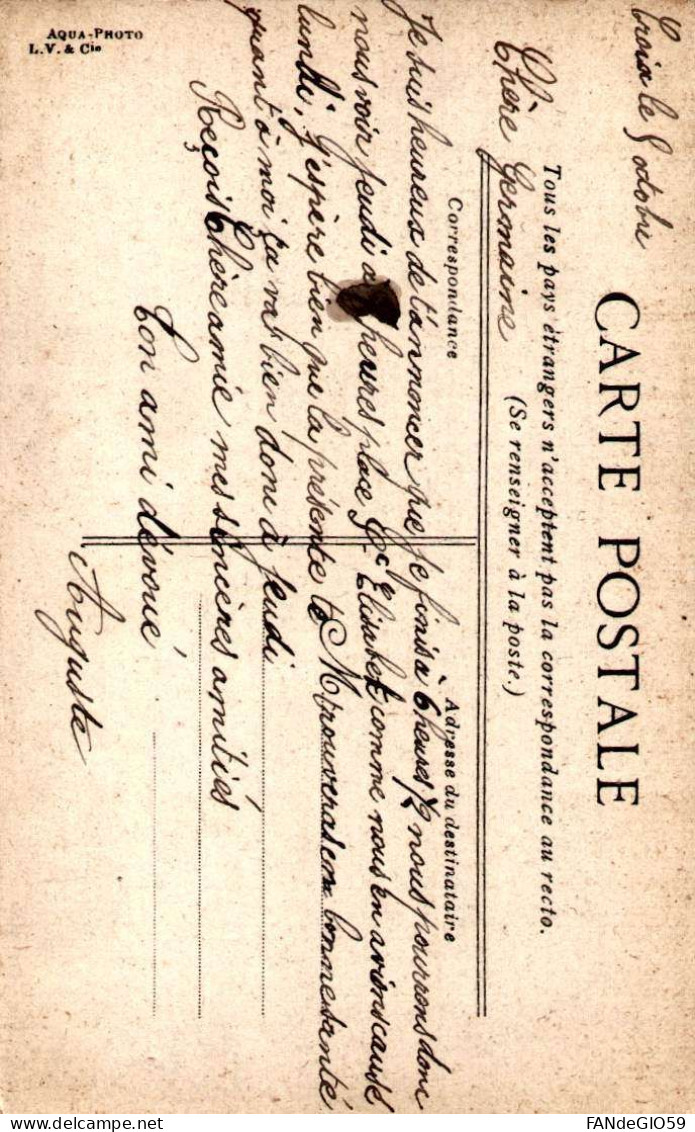 Croix le 8 octobre
CARTE POSTALE
Tous les pays étrangers n'acceptent pas la correspondance au recto.
(Se renseigner à la poste.)
Chère Germaine
Correspondance
Adresse du destinataire
Je suis heureux de t'anmoncer que je finis à 6 heures ½ nous pourrons donc
nous voir jeudi a heures place Ste Elisabet comme nous en avions causé
lundi, J'espère bien que la présente te trouveras en bonne santé
quant à moi ça va bien donc à jeudi
Reçois Chère amie mes sincères amitiés
Ton ami dévoué
Auguste
AQUA-PHOTO
L.V. & Cie
FANdeGIO59